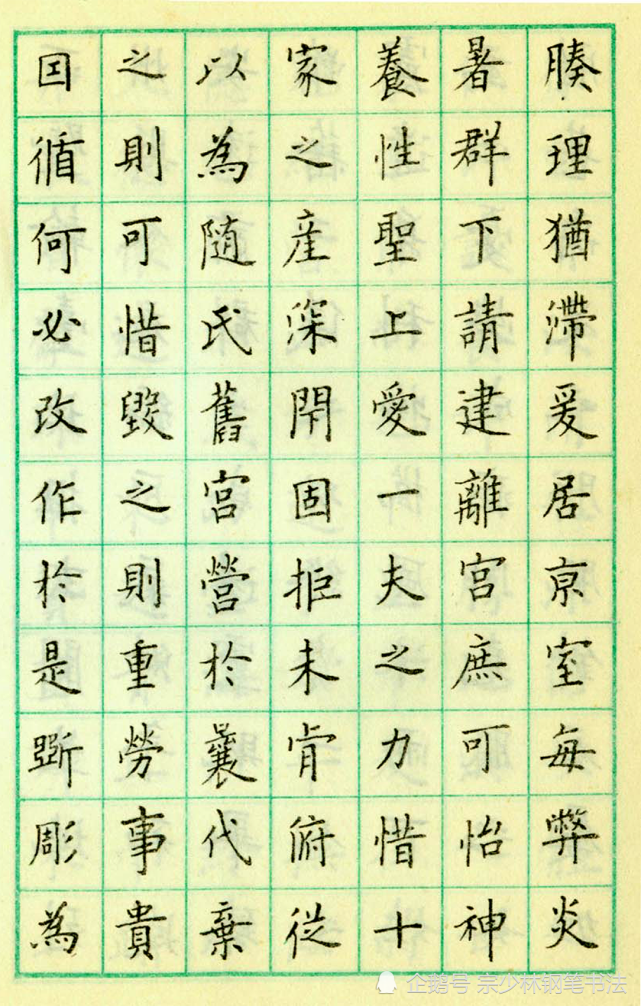 腠理猶滯爰居京室每弊炎
暑群下請建離宮庶可怡神
養性聖上愛一夫之力惜十
家之產深閇固拒未肯俯從
以為隨氏舊宮營於曩代棄
之則可惜毀之則重勞事貴
因循何必改作於是斲彫為
企鹅号 宗少林钢笔书法